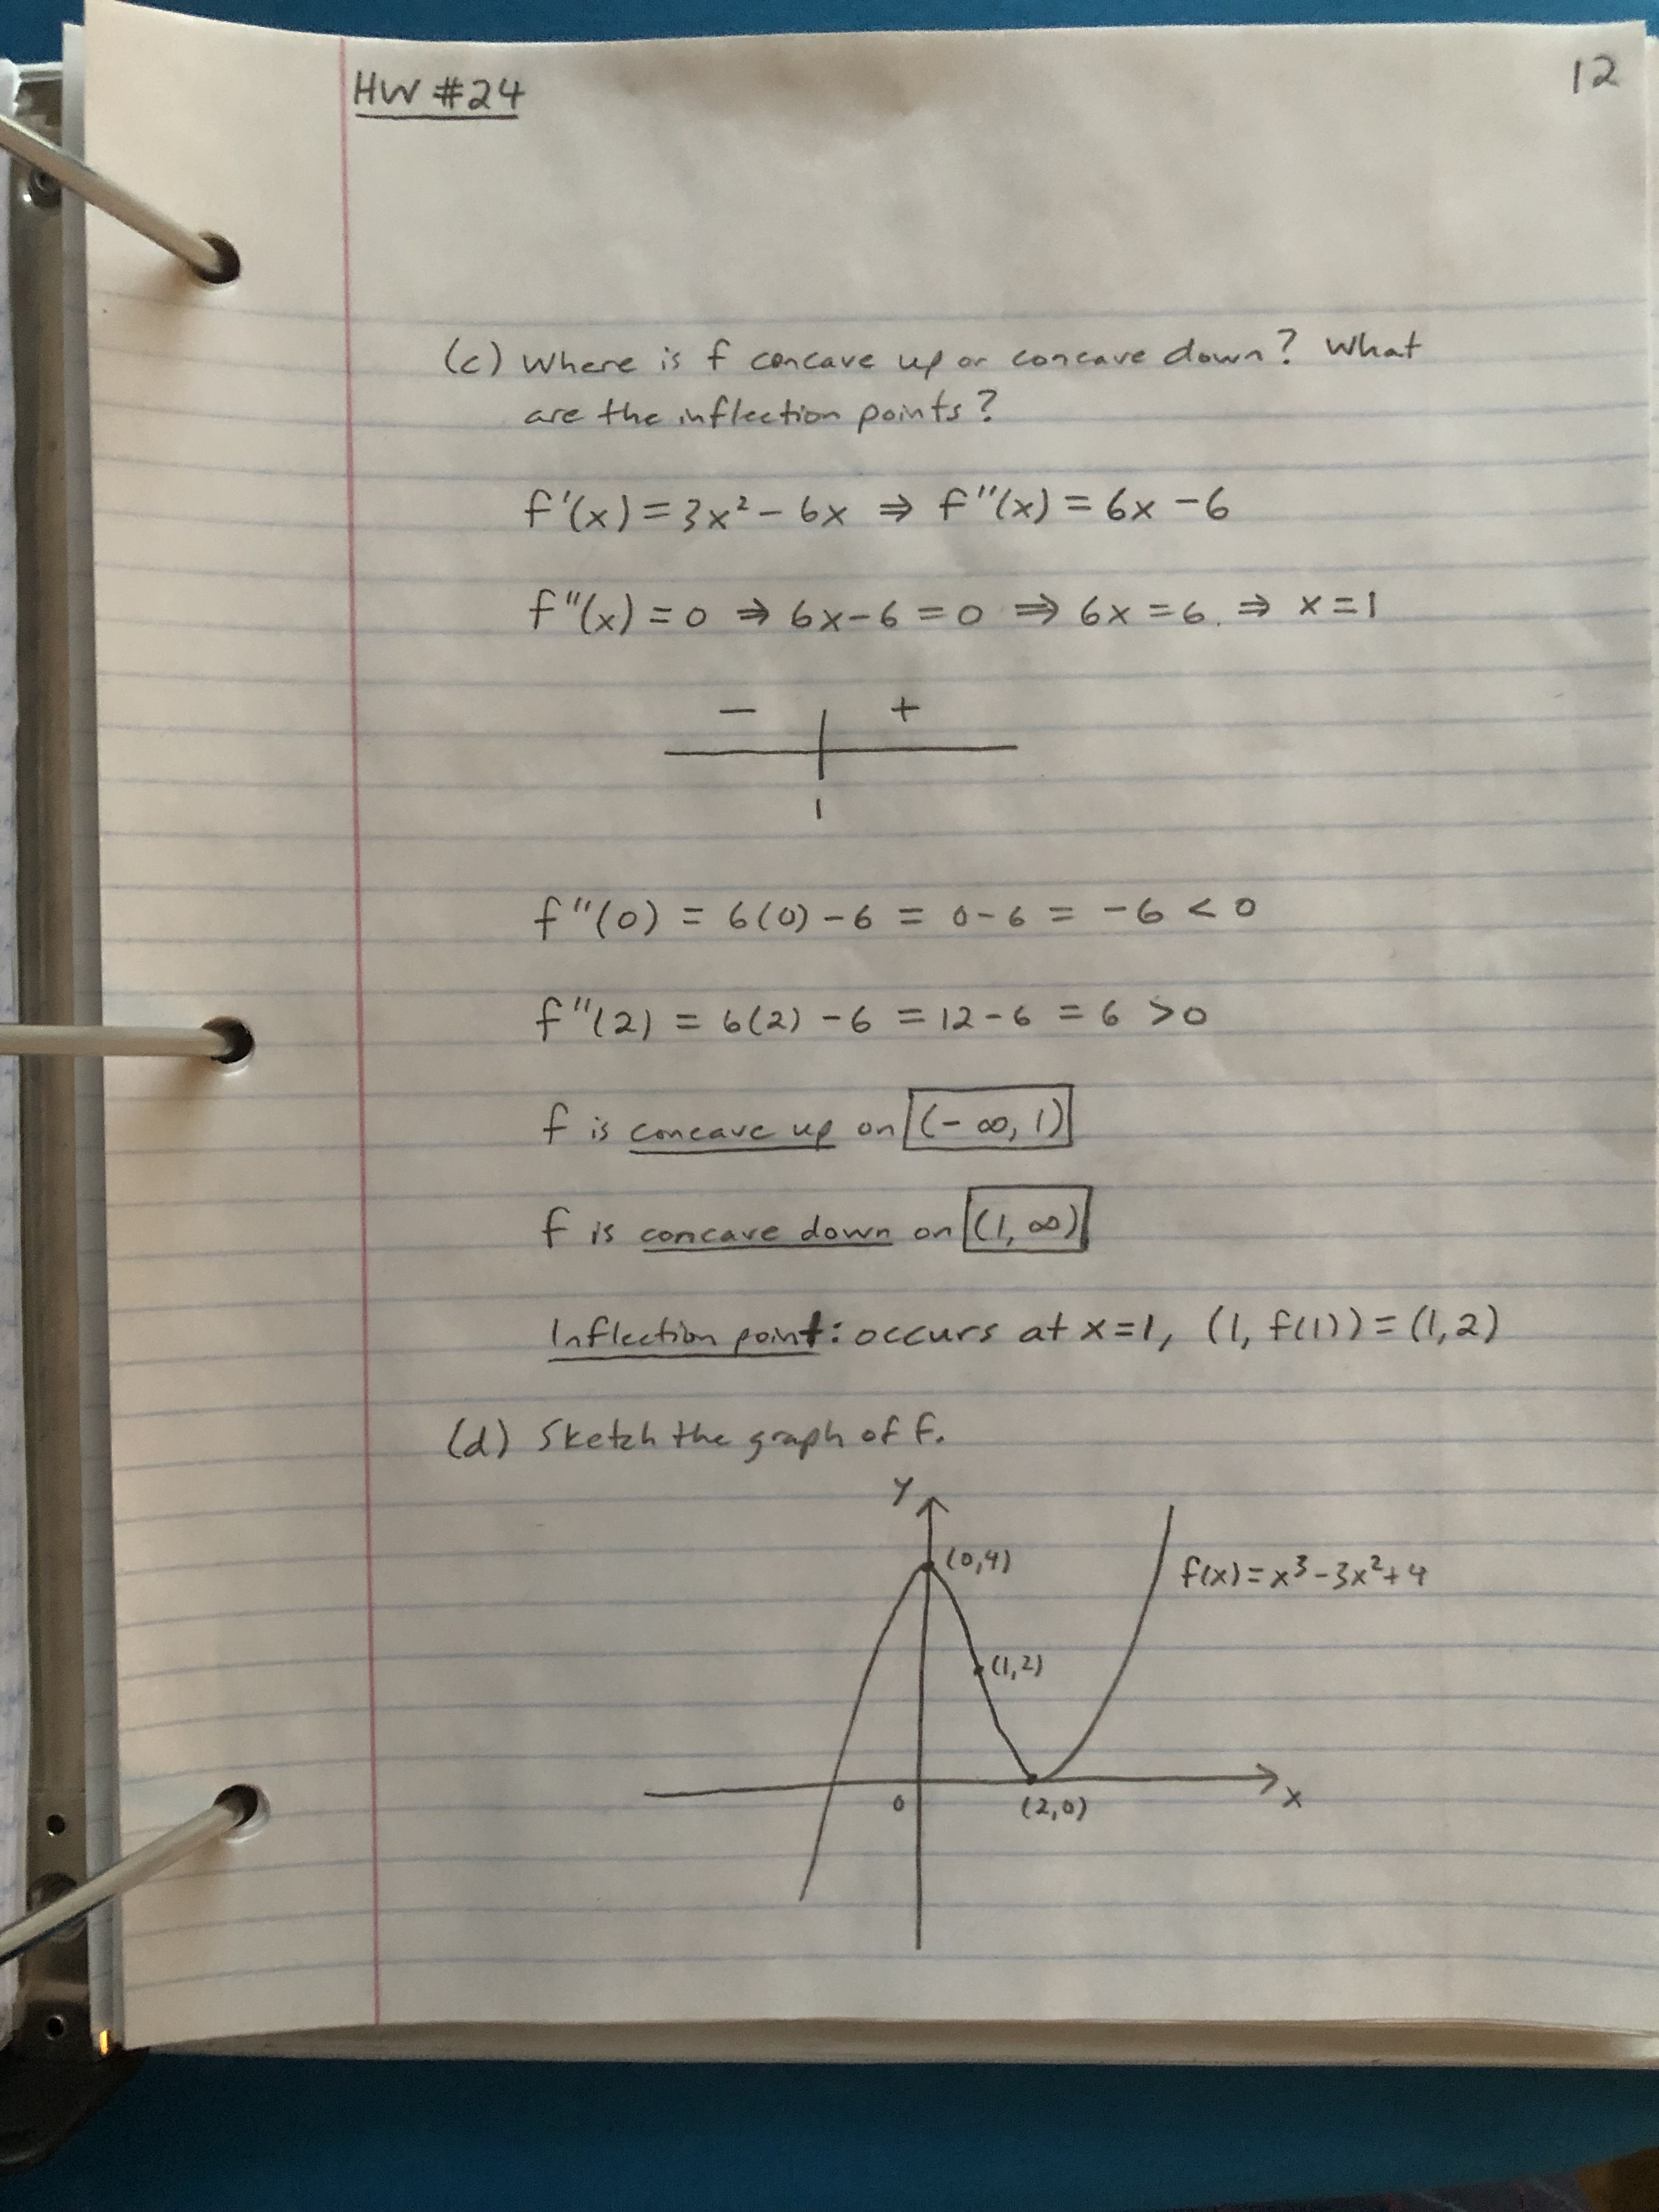 HW #24
12
(c) Where is f concave up or concave down? What
are the inflection points?
f'(x) = 3x² - 6x ⇒ f''(x) = 6x - 6
f''(x) = 0 ⇒ 6x - 6 = 0 ⇒ 6x = 6. ⇒ x = 1
- +
1
f''(0) = 6(0) - 6 = 0 - 6 = -6 < 0
f''(2) = 6(2) - 6 = 12 - 6 = 6 > 0
f is concave up on (-∞, 1)
f is concave down on (1, ∞)
Inflection point: occurs at x=1, (1, f(1)) = (1,2)
(d) Sketch the graph of f.
y
(0,4)
f(x) = x³ - 3x² + 4
(1,2)
0
(2,0)
x